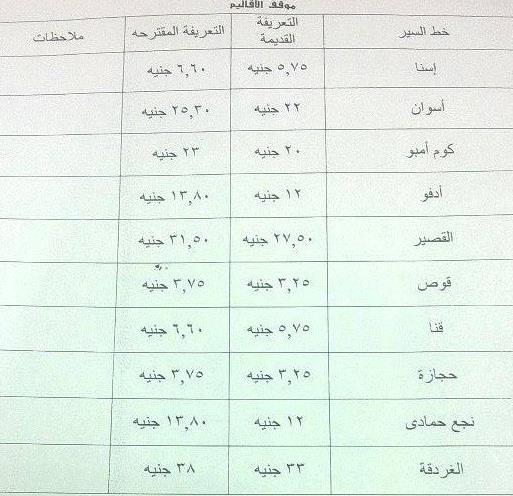 موقف الأقاليم
خط السير التعريفة القديمة التعريفة المقترحه ملاحظات
إسنا ٥,٧٥ جنيه ٦,٦٠ جنيه
أسوان ٢٢ جنيه ٢٥,٣٠ جنيه
كوم أمبو ٢٠ جنيه ٢٣ جنيه
أدفو ١٢ جنيه ١٣,٨٠ جنيه
القصير ٢٧,٥٠ جنيه ٣١,٥٠ جنيه
قوص ٣,٢٥ جنيه ٣,٧٥ جنيه
قنا ٥,٧٥ جنيه ٦,٦٠ جنيه
حجازة ٣,٢٥ جنيه ٣,٧٥ جنيه
نجع حمادى ١٢ جنيه ١٣,٨٠ جنيه
الغردقة ٣٣ جنيه ٣٨ جنيه